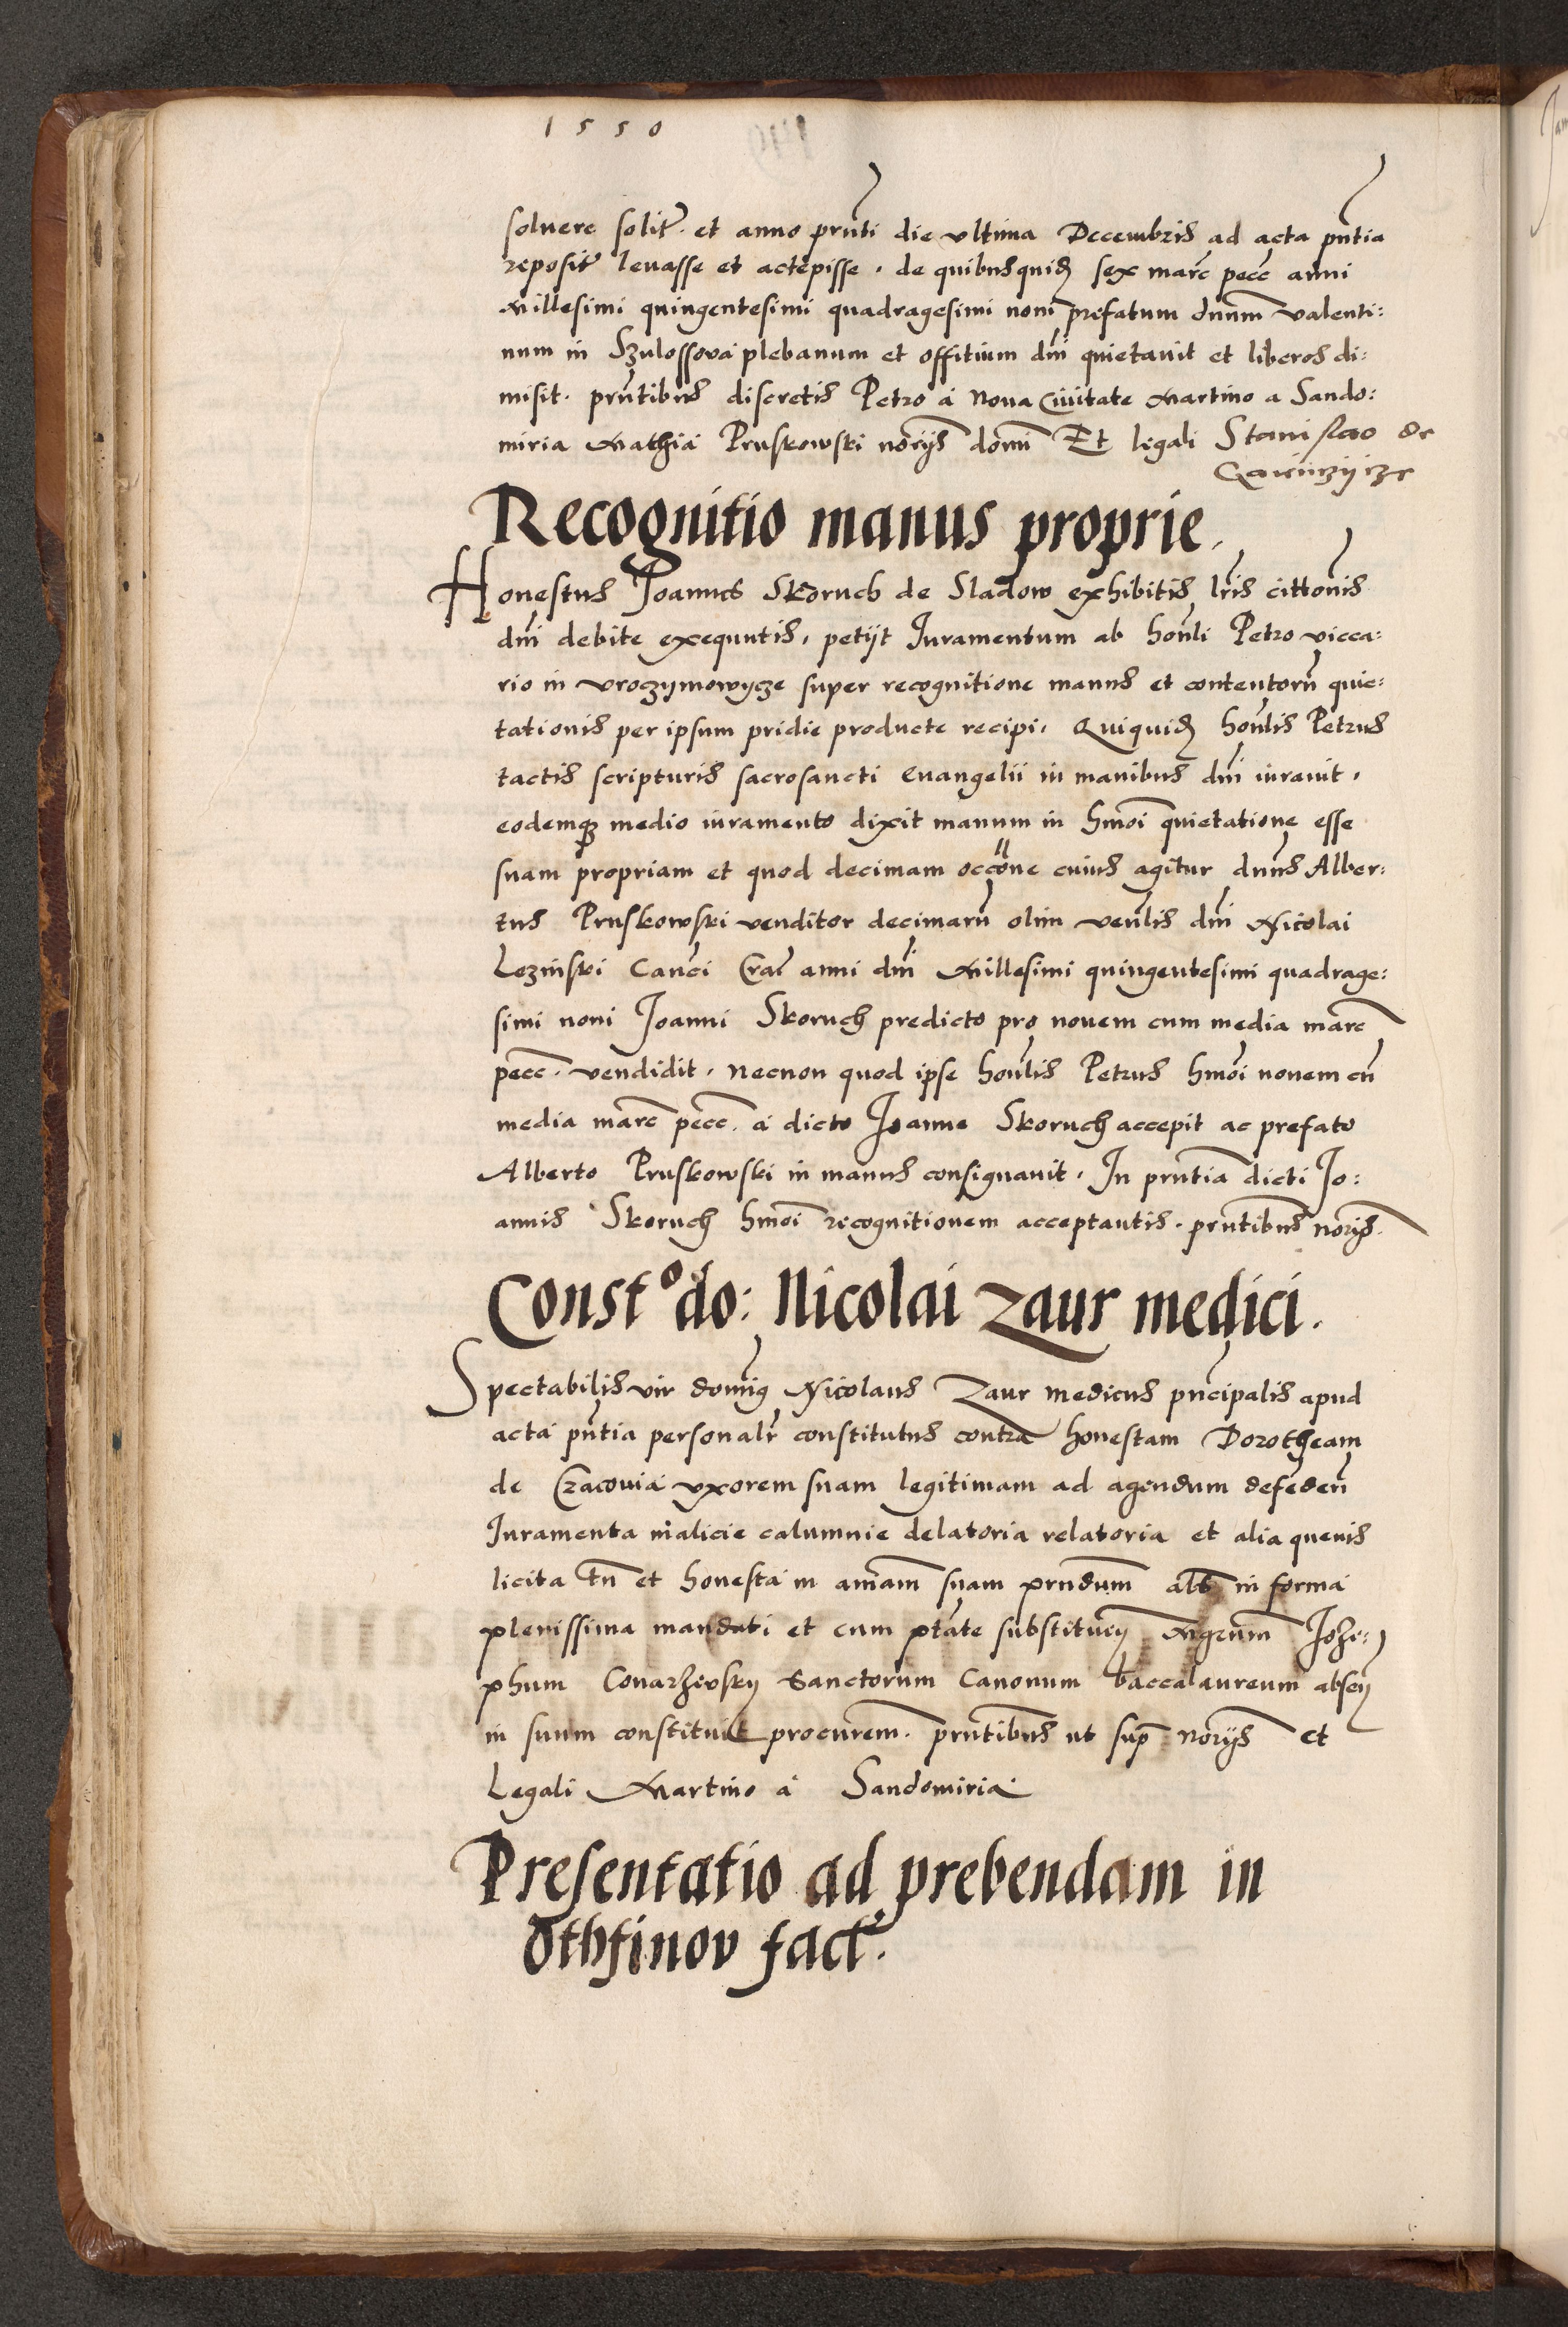 1550
soluere solit. et anno prnti die vltima Decembris ad acta pntia
reposit leuasse et accepisse. de quibusquid sex marc pecc anni
Millesimi quingentesimi quadragesimi noni prefatum dnnm valenti:
num in Szulossova plebanum et offitium dni quietauit et liberos di:
misit. prntibus discretis Petro a Noua Ciuitate Martino a Sando:
miria Mathia Pruskowski norijs domi Et legali Stanislao de
Recognitio manus proprie.
Honestus Joannes Skoruch de Sladow exhibitis lris cittonis
dni debite exequutis, petijt Juramentum ab honli Petro vicca:
rio in vroczymowycze super recognitione manus et contentorn quie:
tationis per ipsum pridie producte recipi. Quiquid honlis Petrus
tactis scripturis sacrosancti Euangelii in manibus dni iurauit,
eodemq medio iuramento dixit manum in hmoi quietatione esse
suam propriam et quod decimam occone cuius agitur dnns Alber:
tus Pruskowski venditor decimarn olim venlis dni Nicolai
Lezinski Canci Crac anni dni Millesimi quingentesimi quadrage:
simi noni Joanni Skoruch predicto pro nouem cum media marc
pecc. vendidit. necnon quod ipse honlis Petrus hmoi nouem cn
media marc pecc. a dicto Joanne Skoruch accepit ac prefato
Alberto Pruskowski in manus consignauit. In prntia dicti Jo:
annis Skoruch hmoi recognitionem acceptantis. prntibus norijs.
Const° do: Nicolai Zaur medici.
Spectabilis vir doming Nicolaus Zaur medicus pncipalis apud
acta pntia personalr constitutus contra honestam Dorotheam
de Cracouia vxorem suam legitimam ad agendum defeden
Juramenta malicie calumnie delatoria relatoria et alia queuis
licita tn et honesta in amam suam prndum alt in forma
plenissima mandati et cum ptate substituen Mgrum Joze:
phum Conarzevsky Sanctorum Canonum baccalaureum absen
in suum constituit procurem. prntibus ut sup norijs et
Legali Martino a Sandomiria
Presentatio ad prebendam in
Othfinov fact.